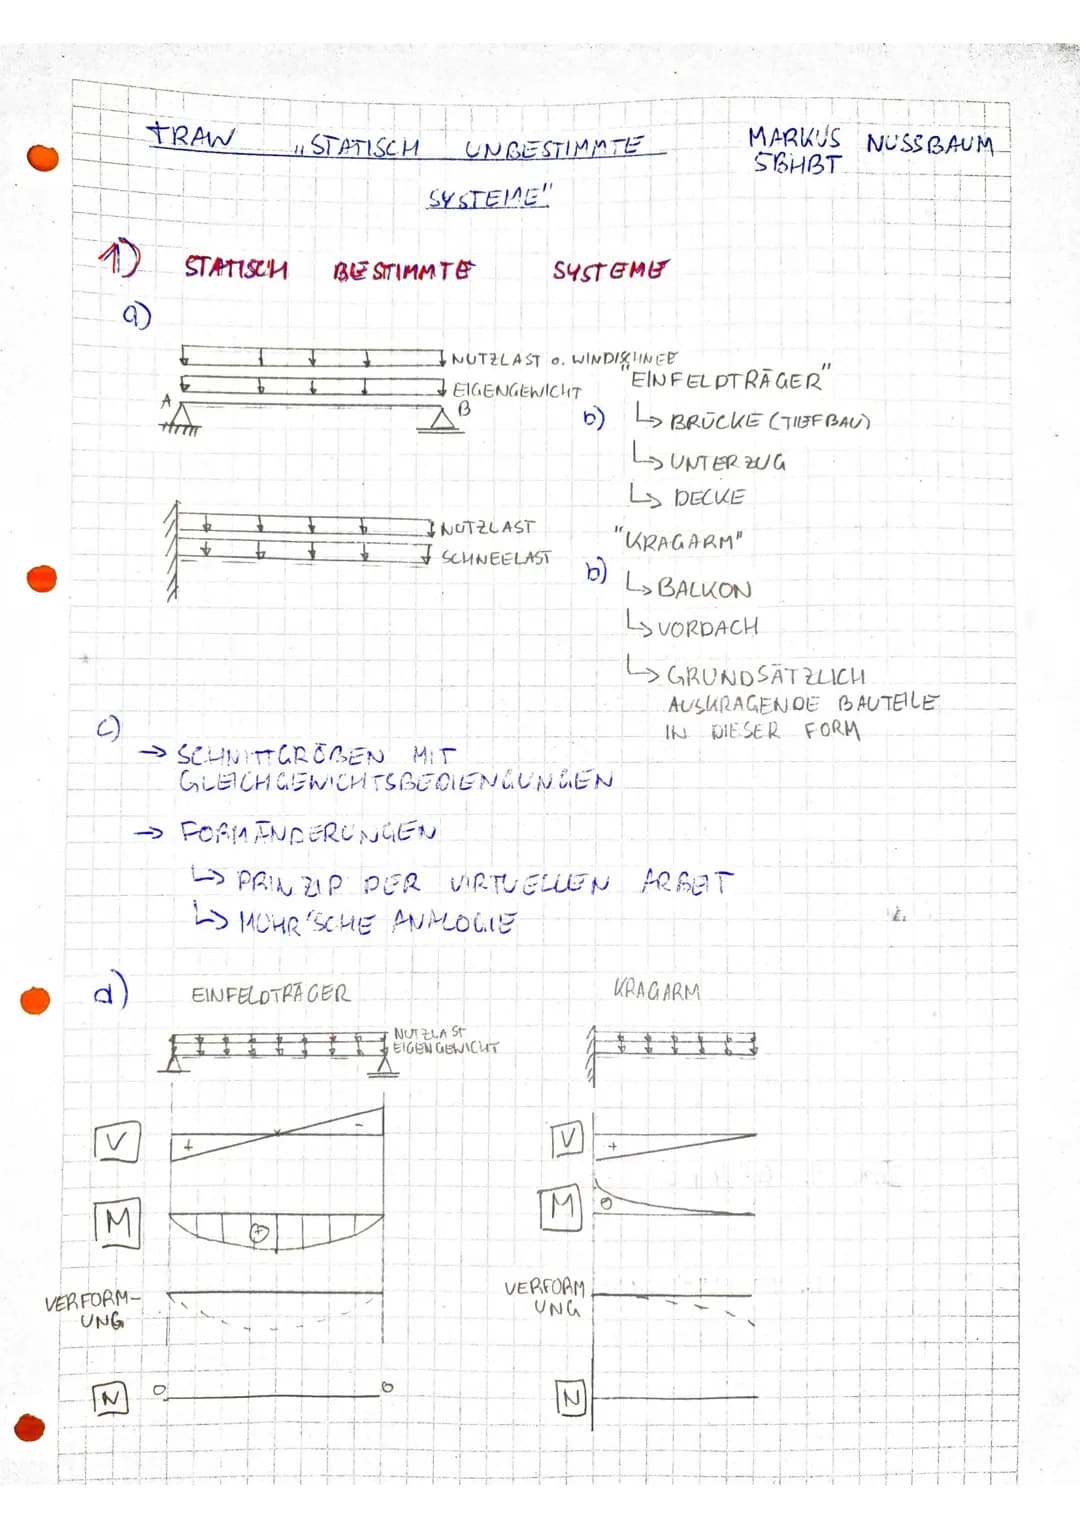 TRAW „STATISCH UNBESTIMMTE
SYSTEME"
MARKUS NUSSBAUM
5BHBT
1) STATISCH BESTIMMTE SYSTEME
a)
NUTZLAST o. WIND/SCHNEE
EIGENGEWICHT
A
B
"EINFELDTRÄGER"
b) ↳ BRÜCKE (TIEFBAU)
↳ UNTERZUG
↳ DECKE
NUTZLAST
SCHNEELAST
"KRAGARM"
b) ↳ BALKON
↳ VORDACH
↳ GRUNDSÄTZLICH
AUSKRAGENDE BAUTEILE
IN DIESER FORM
c)
→ SCHNITTGRÖßEN MIT
GLEICHGEWICHTSBEDIENGUNGEN
→ FORMÄNDERUNGEN
↳ PRINZIP DER VIRTUELLEN ARBEIT
↳ MOHR'SCHE ANALOGIE
d) EINFELDTRÄGER
KRAGARM
NUTZLAST
EIGENGEWICHT
V
+
-
V
+
M
+
M
VERFORM-
UNG
VERFORM
UNG
N
0
0
N